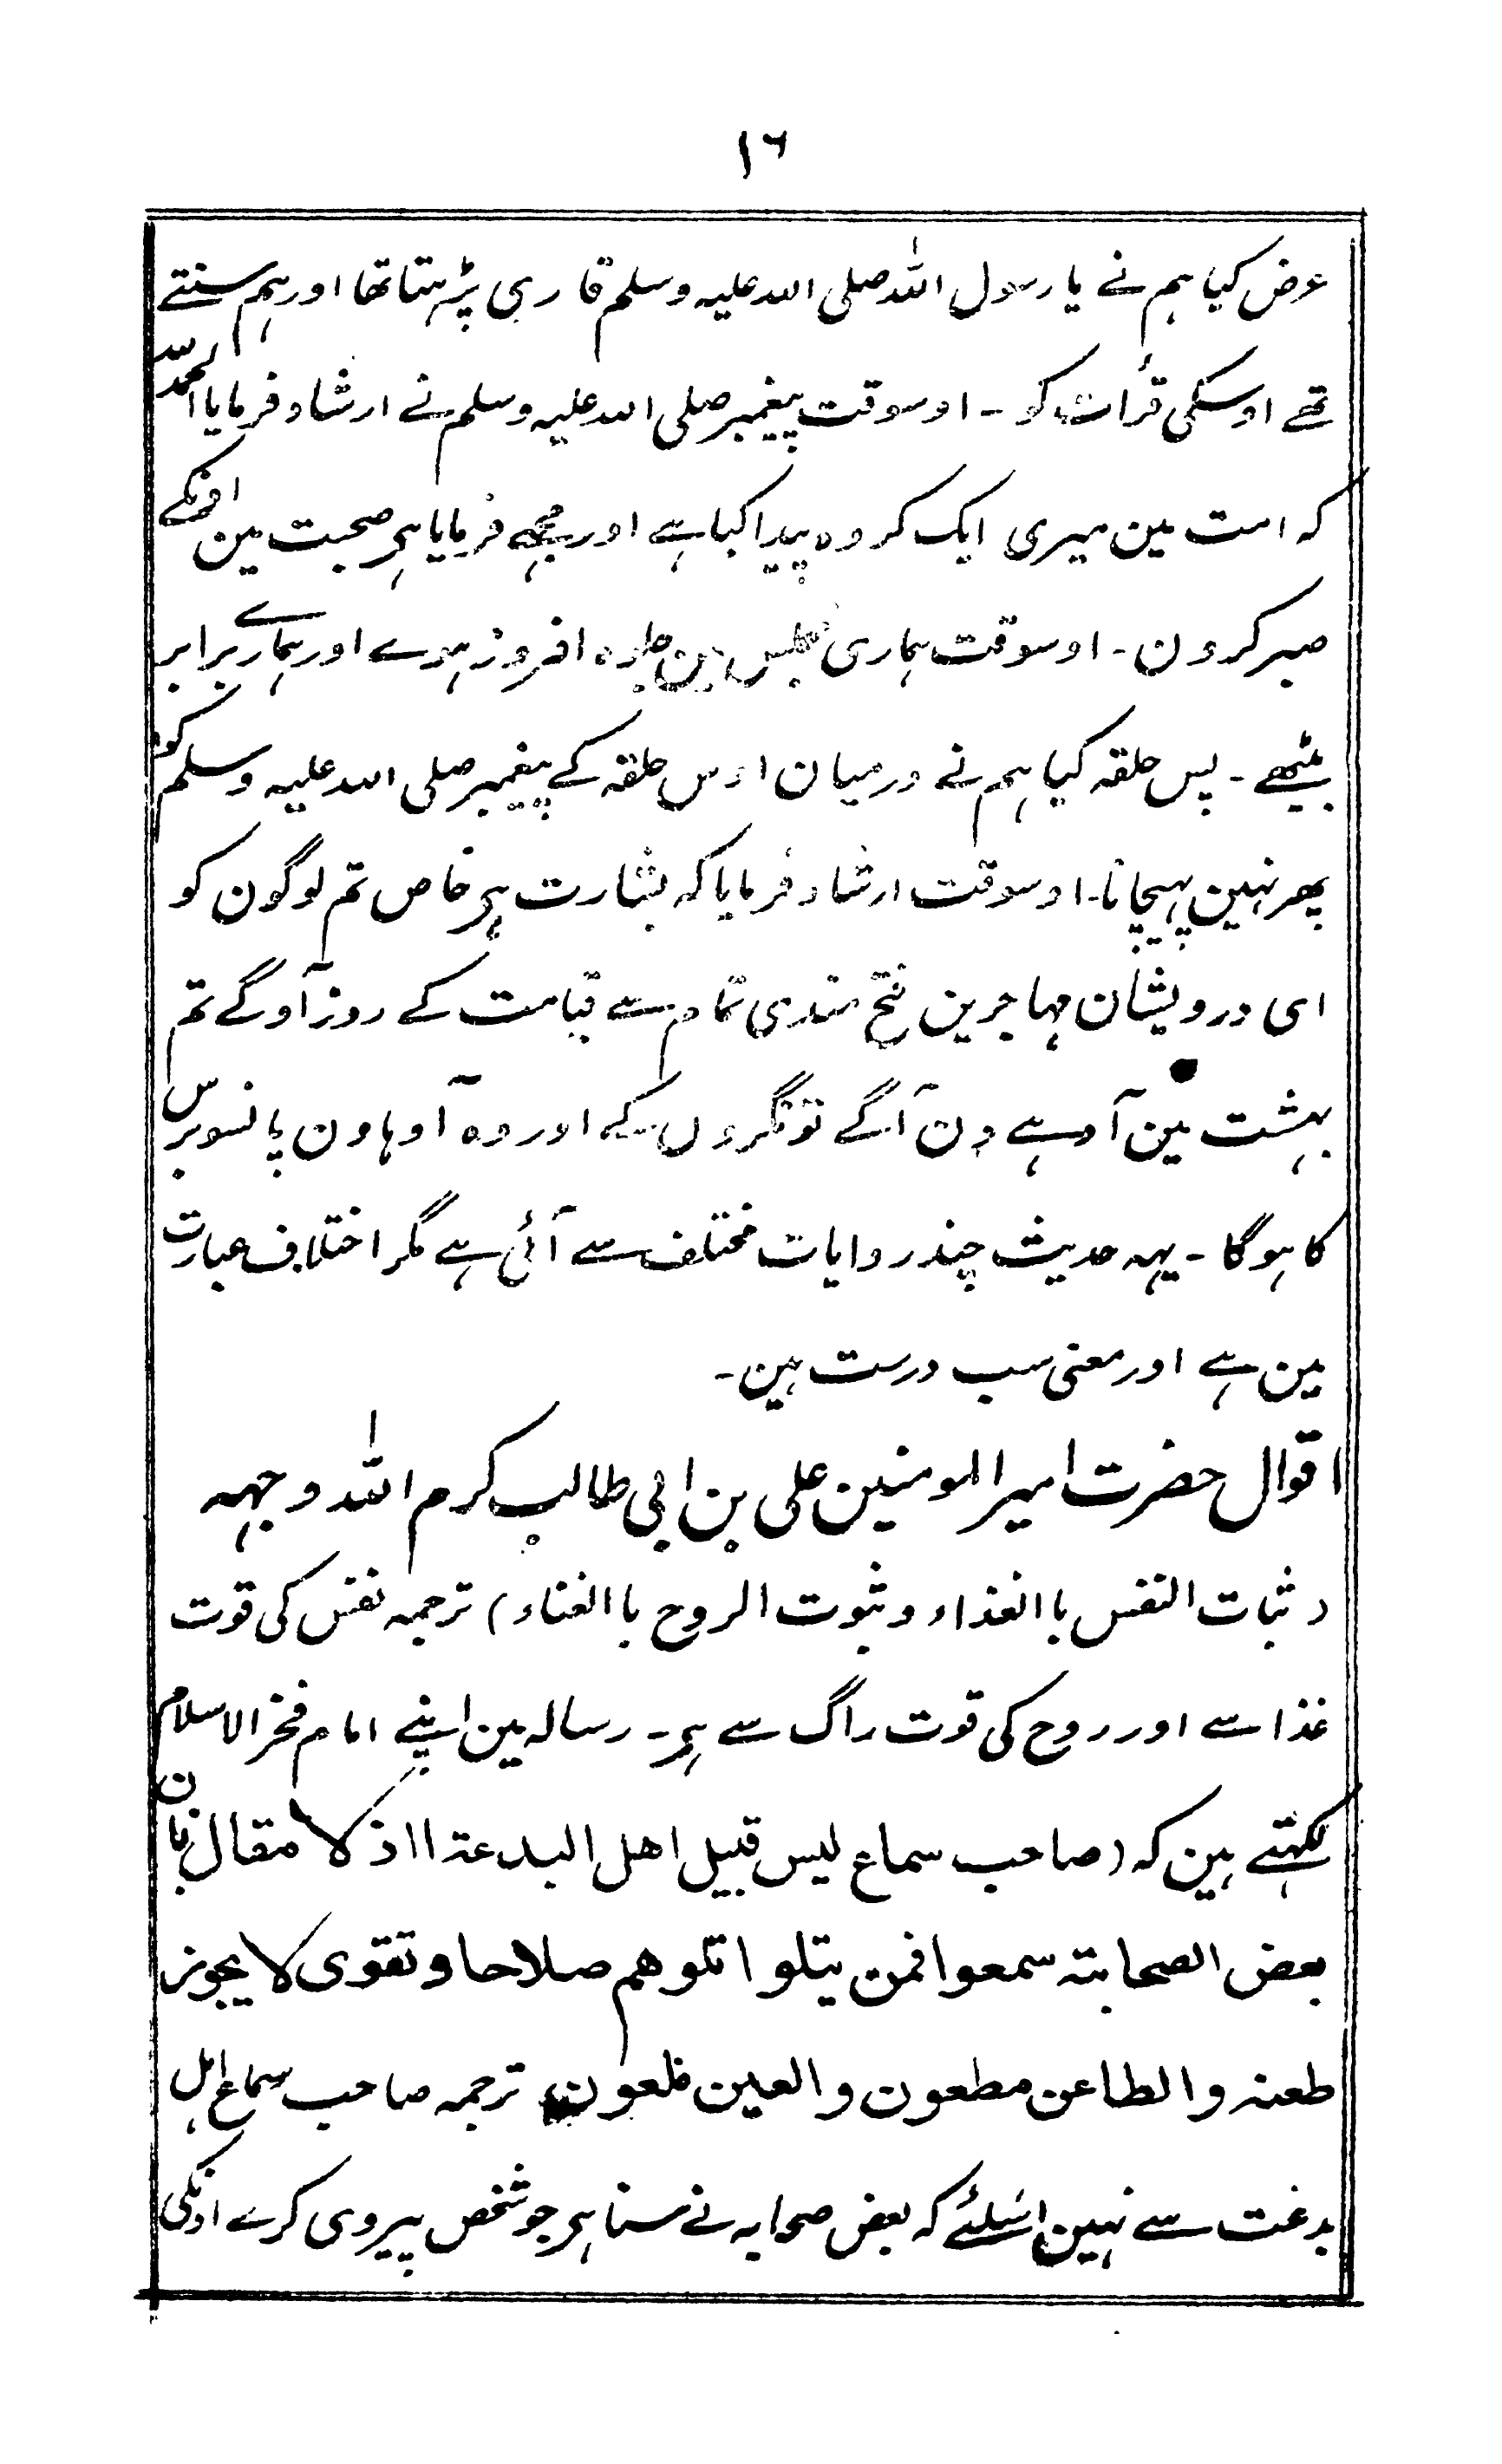 ١٦
عرض کیا ہم نے یا رسول اللہ صلی اللہ علیہ وسلم قاری پڑہتا تھا اور ہم سنتے
تھے اوسکی قرأت کو - اوسوقت پیغمبر صلی اللہ علیہ وسلم نے ارشاد فرمایا الحمد للہ
کہ امت مین میری ایک گروہ پیدا کیا ہے اور مجھے فرمایا ہی صحبت مین اونکے
صبر کرون - اوسوقت ہماری مجلس مین جلوہ افروز ہوے اور ہمارے برابر
بیٹھے - پس حلقہ کیا ہم نے درمیان اوس حلقہ کے پیغمبر صلی اللہ علیہ وسلم کو
پھر نہین پہچانا - اوسوقت ارشاد فرمایا کہ بشارت ہی خاص تم لوگون کو
ای درویشان مہاجرین فتح مندی تمام سے قیامت کے روز آوگے تم
بہشت مین آدہے دن آگے تونگروں کے اور وہ آدہا دن پانسو برس
کا ہوگا - یہہ حدیث چند روایات مختلف سے آئی ہے مگر اختلاف عبارت
مین ہے اور معنی سب درست ہین -
اقوال حضرت امیر المومنین علی بن ابی طالب کرم اللہ وجہہ
( ثبات النفس با الغذاء و ثبوت الروح با الغناء ) ترجمہ نفس کی قوت
غذا سے اور روح کی قوت راگ سے ہی - رسالہ مین اپنے امام فخر الاسلام
لکہتے ہین کہ ( صاحب سماع لیس قبیل اھل البدعۃ ااذ لا مقال بان
بعض الصحابتہ سمعوا فمن یتلوا تلوھم صلاحا و تقوی لا یجوز
طعنہ والطاعن مطعون والعین ملعون ترجمہ صاحب سماع اہل
بدعت سے نہین اسلئے کہ بعض صحابہ نے سنا ہی جو شخص پیروی کرے اونکی